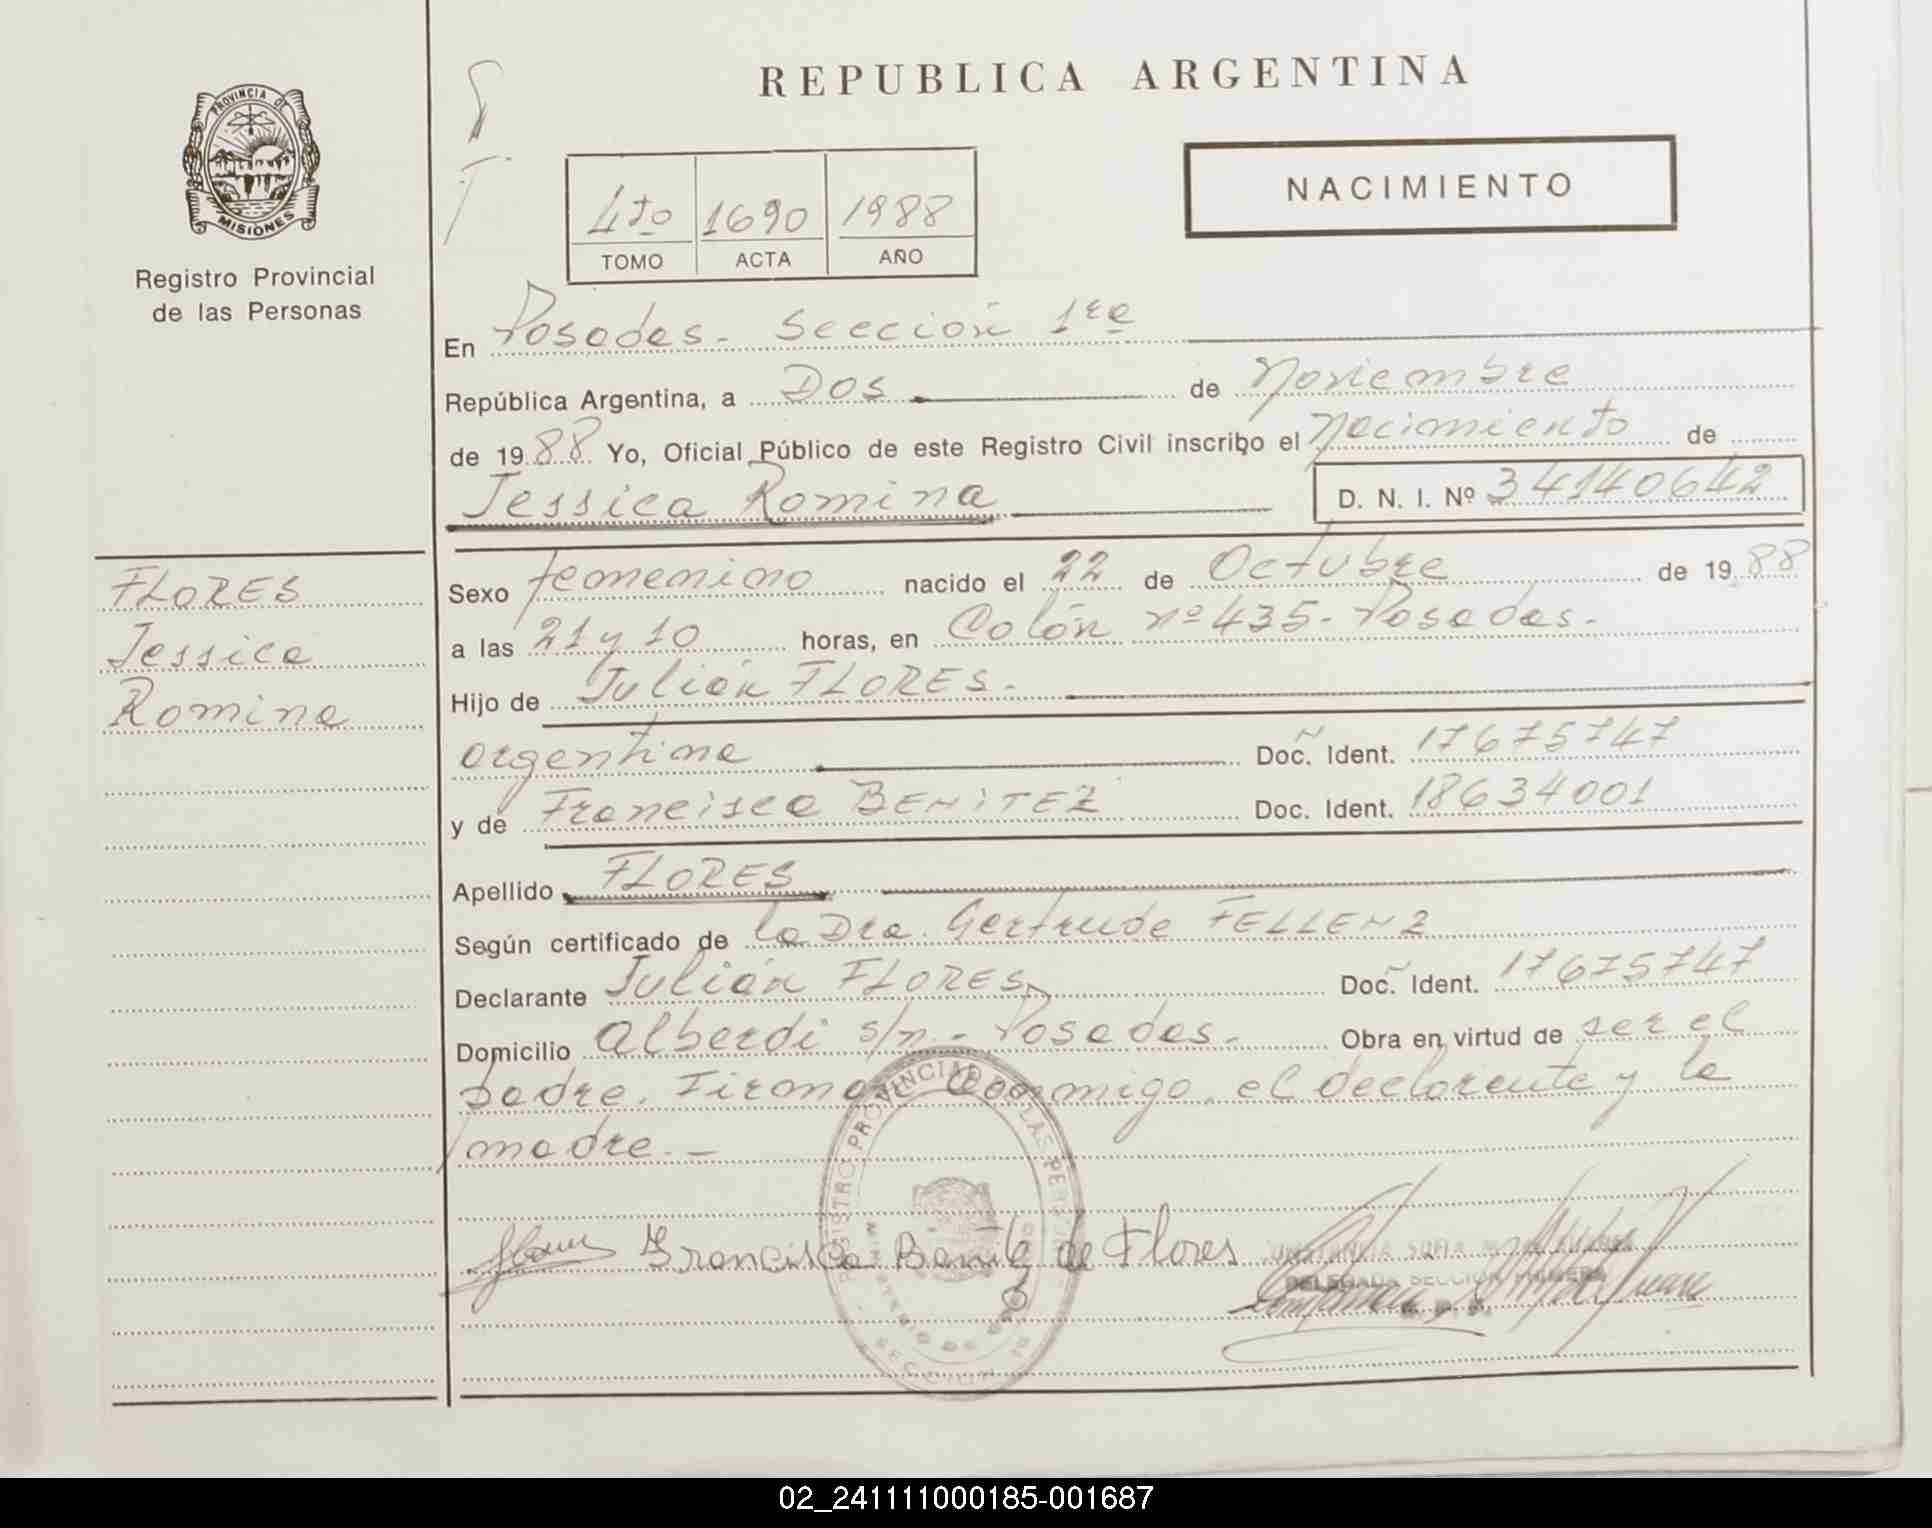 REPUBLICA ARGENTINA
PROVINCIA DE
MISIONES
Registro Provincial
de las Personas
4to 1690 1988
TOMO ACTA AÑO
NACIMIENTO
En Posadas - Sección 1ra
República Argentina, a Dos de Noviembre
de 1988 Yo, Oficial Público de este Registro Civil inscribo el Nacimiento de
Jessica Romina D. N. I. Nº 34140642
FLORES
Jessica
Romina
Sexo femenino nacido el 22 de Octubre de 1988
a las 21 y 10 horas, en Colón nº 435 - Posadas.
Hijo de Julián FLORES.
argentina Doc. Ident. 17675747
y de Francisca BENITEZ Doc. Ident. 18634001
Apellido FLORES
Según certificado de la Dra. Gertrude FELLENZ
Declarante Julián FLORES Doc. Ident. 17675747
Domicilio Alberdi s/n - Posadas. Obra en virtud de ser el
padre. Firman conmigo, el declarante y la
madre. -
Francisca Benitez de Flores
DELEGADA SECCION PRIMERA
02_241111000185-001687